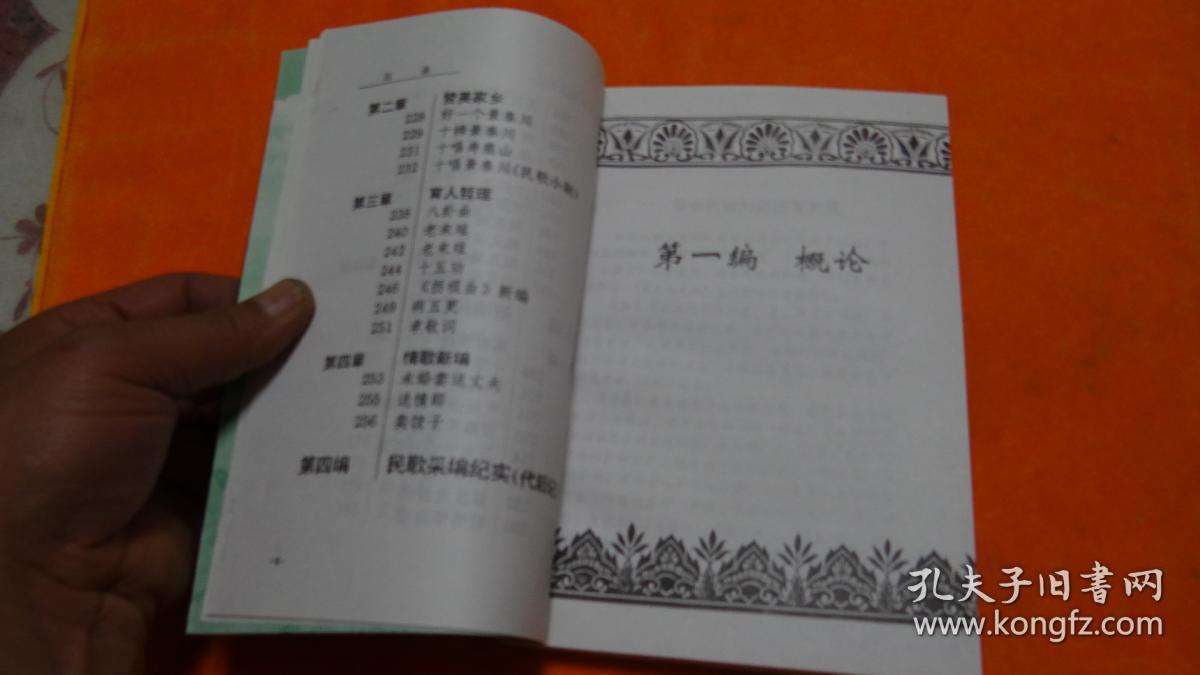 目 录
第二章 赞美家乡
228 好一个景泰川
229 十绣景泰川
231 十唱寿鹿山
232 十唱景泰川(民歌小剧)
第三章 育人哲理
238 八卦曲
240 老来难
242 老来难
244 十五劝
246 《拐棍曲》新编
249 病五更
251 孝敬词
第四章 情歌新编
253 未婚妻送丈夫
255 送情郎
256 卖饺子
第四编 民歌采编纪实(代后记
第一编 概论
孔夫子旧书网
www.kongfz.com